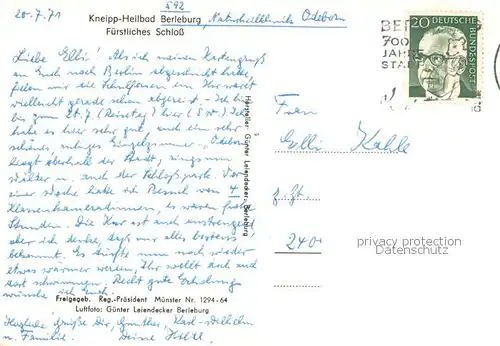 20.-7.71
592
Kneipp-Heilbad Berleburg
Naturheilklinik Odeborn
Fürstliches Schloß
Liebe Elli! Als ich meinen Kartengruß
an Euch nach Berlin abgeschickt hatte,
fielen mir die Schulferien ein. Ihr waret
vielleicht gerade schon abgereist. Ich bin
bis zum 27.7. (Dienstag) hier (5 W.). Ich
habe es hier sehr gut, auch ein sehr
schönes, ruhiges Einzelzimmer. "Odeborn"
liegt oberhalb der Stadt, ringsum
Wälder u. auch der Schloßpark. Vor
einer Woche hatte ich Besuch von 4
Klassenkameradinnen, es waren frohe
Stunden. Die Kur ist auch anstrengend,
aber ich denke, daß mir alles bestens
bekommt. Es dürfte nun auch wieder
etwas wärmer werden, Ihr wollt doch auch
dort schwimmen. Recht gute Erholung
wünsche ich Euch.
Freigegeb. Reg.-Präsident Münster Nr. 1294-64
Luftfoto: Günter Leiendecker Berleburg
Herzliche Grüße Dir, Günther, Karl-Wilhelm
u. Familie. Deine
Hersteller: Günter Leiendecker, Berleburg
BERL
700
JAHRE
STADT
20 DEUTSCHE
BUNDESPOST
Frau
Elli Kahle
z. Zt.
2400
privacy protection
Datenschutz